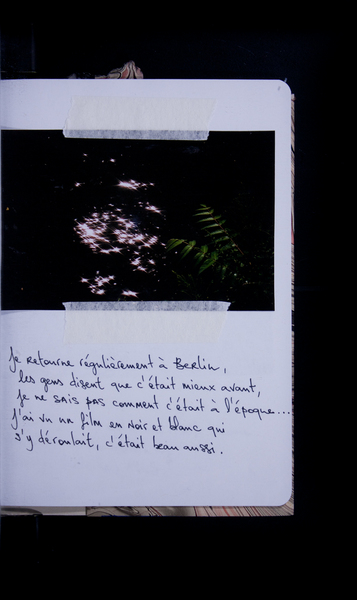 Je retourne régulièrement à Berlin,
les gens disent que c'était mieux avant,
Je ne sais pas comment c'était à l'époque...
J'ai vu un film en noir et blanc qui
s'y déroulait, c'était beau aussi.